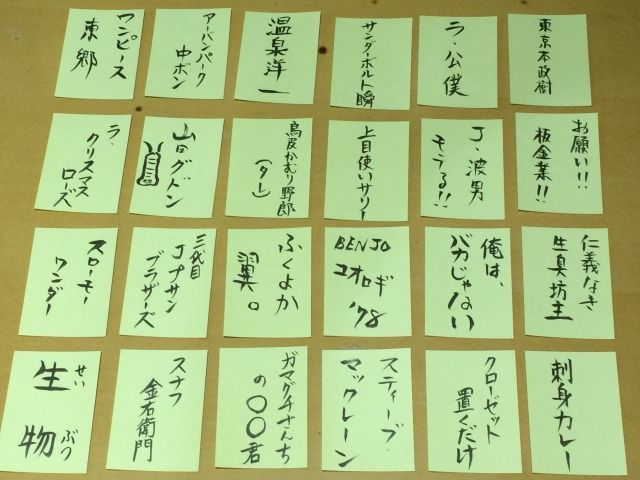 ワンピース
東郷
アーバンパーク
中ボン
温泉洋一
サンダーボルト瞬
ラ・公僕
東京本政樹
ラ・
クリスマス
ローズ
鳥皮かむり野郎
(タレ)
上目使いサリー
J・波男
そうる!!
お願い!!
板金業!!
スローモー
ワンダー
三代目
Jプサン
ブラザーズ
ふくよか
翼。
BENJO
コオロギ
'78
俺は、
バカじゃない
仁義なき
生臭坊主
生物
せいぶつ
スナフ
金右衛門
ガマグチさんち
の〇〇君
スティーブ・
マックレーン
クローゼット
置くだけ
刺身カレー